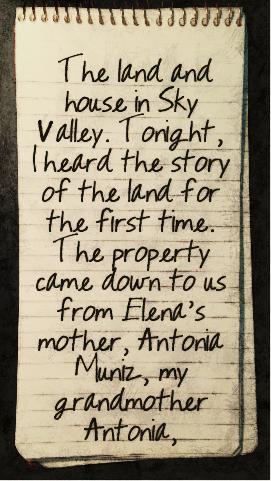 The land and
house in Sky
Valley. Tonight,
I heard the story
of the land for
the first time.
The property
came down to us
from Elena's
mother, Antonia
Muniz, my
grandmother
Antonia,